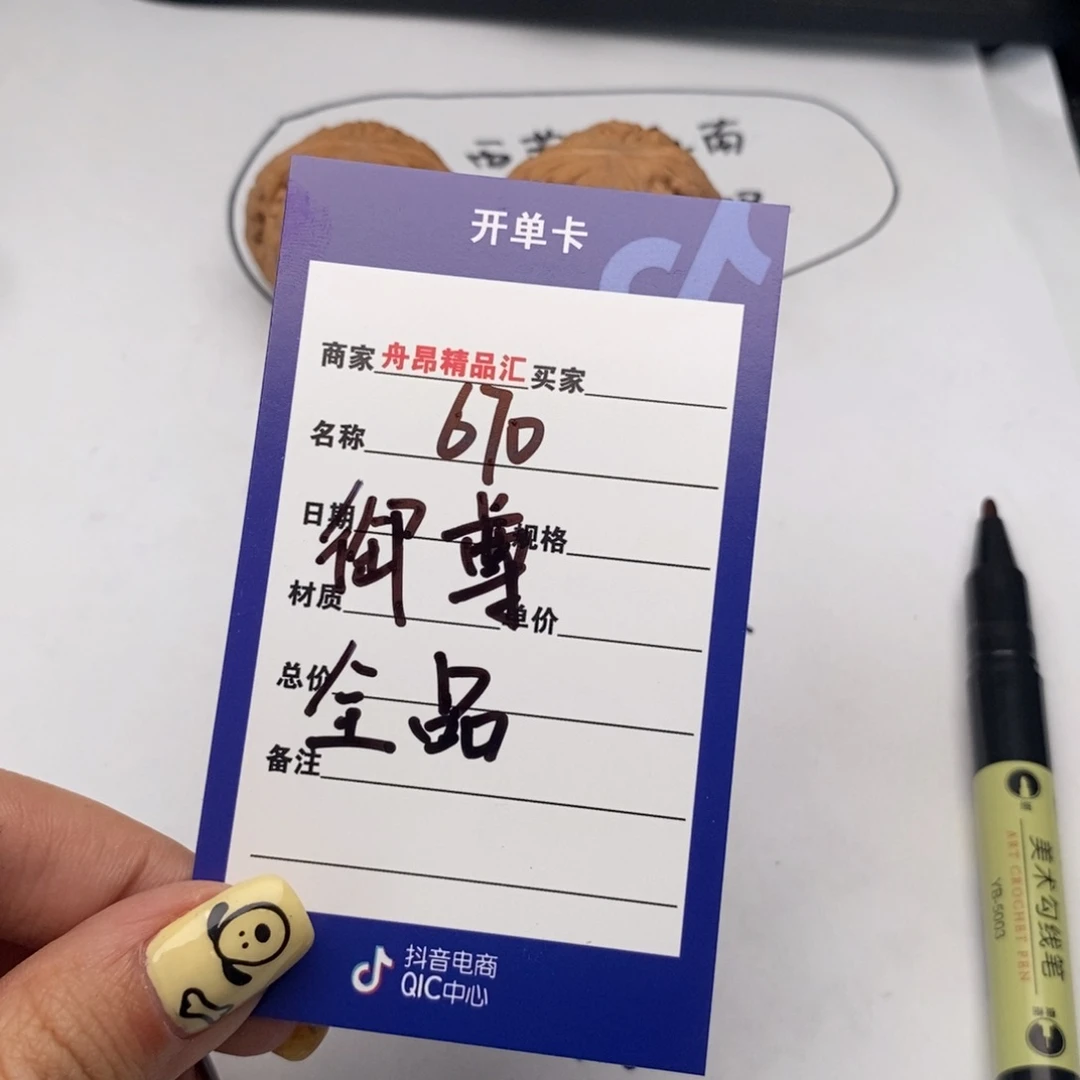 南
开单卡
商家 舟昂精品汇 买家
名称 670
日期 规格
御尊
材质 单价
总价
全品
备注
抖音电商
QIC中心
美术勾线笔
ART CROCHET PEN
YB-5003